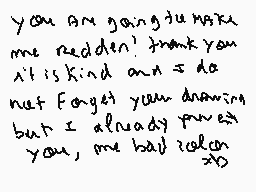 you are going to make
me redden! thank you
it is kind and I do
not Forget your drawing
but I already
you, me bad color